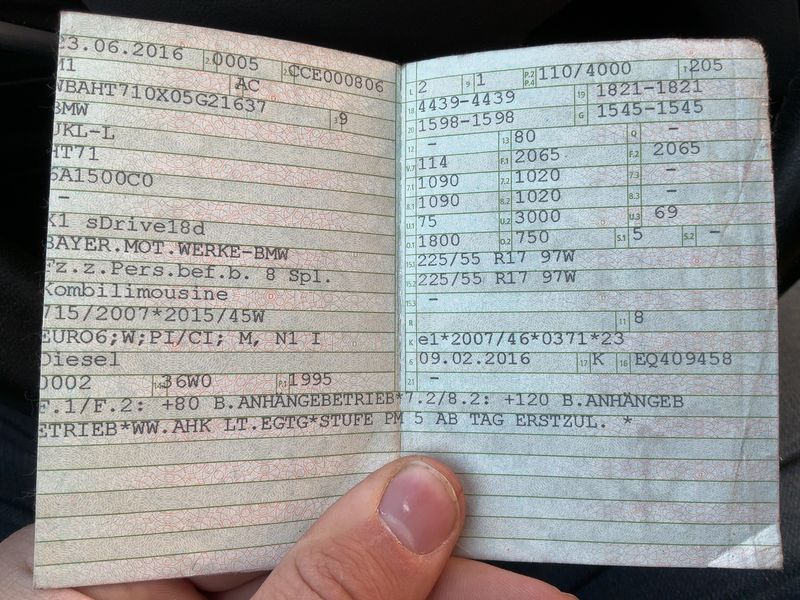 23.06.2016 2.1 0005 2.2 CCE000806
M1 AC
WBAHT710X05G21637 3 9
BMW
UKL-L
HT71
5A1500C0
-
X1 sDrive18d
BAYER.MOT.WERKE-BMW
Fz.z.Pers.bef.b. 8 Spl.
Kombilimousine
715/2007*2015/45W
EURO6;W;PI/CI; M, N1 I
Diesel
0002 14.1 36W0 P.1 1995
L 2 9 1 P.2 P.4 110/4000 T 205
18 4439-4439 19 1821-1821
20 1598-1598 G 1545-1545
12 - 13 80 Q -
V.7 114 F.1 2065 F.2 2065
7.1 1090 7.2 1020 7.3 -
8.1 1090 8.2 1020 8.3 -
U.1 75 U.2 3000 U.3 69
O.1 1800 O.2 750 S.1 5 S.2 -
15.1 225/55 R17 97W
15.2 225/55 R17 97W
15.3 -
R 11 8
K e1*2007/46*0371*23
6 09.02.2016 17 K 16 EQ409458
21 -
F.1/F.2: +80 B.ANHÄNGEBETRIEB*7.2/8.2: +120 B.ANHÄNGEB
ETRIEB*WW.AHK LT.EGTG*STUFE PM 5 AB TAG ERSTZUL. *